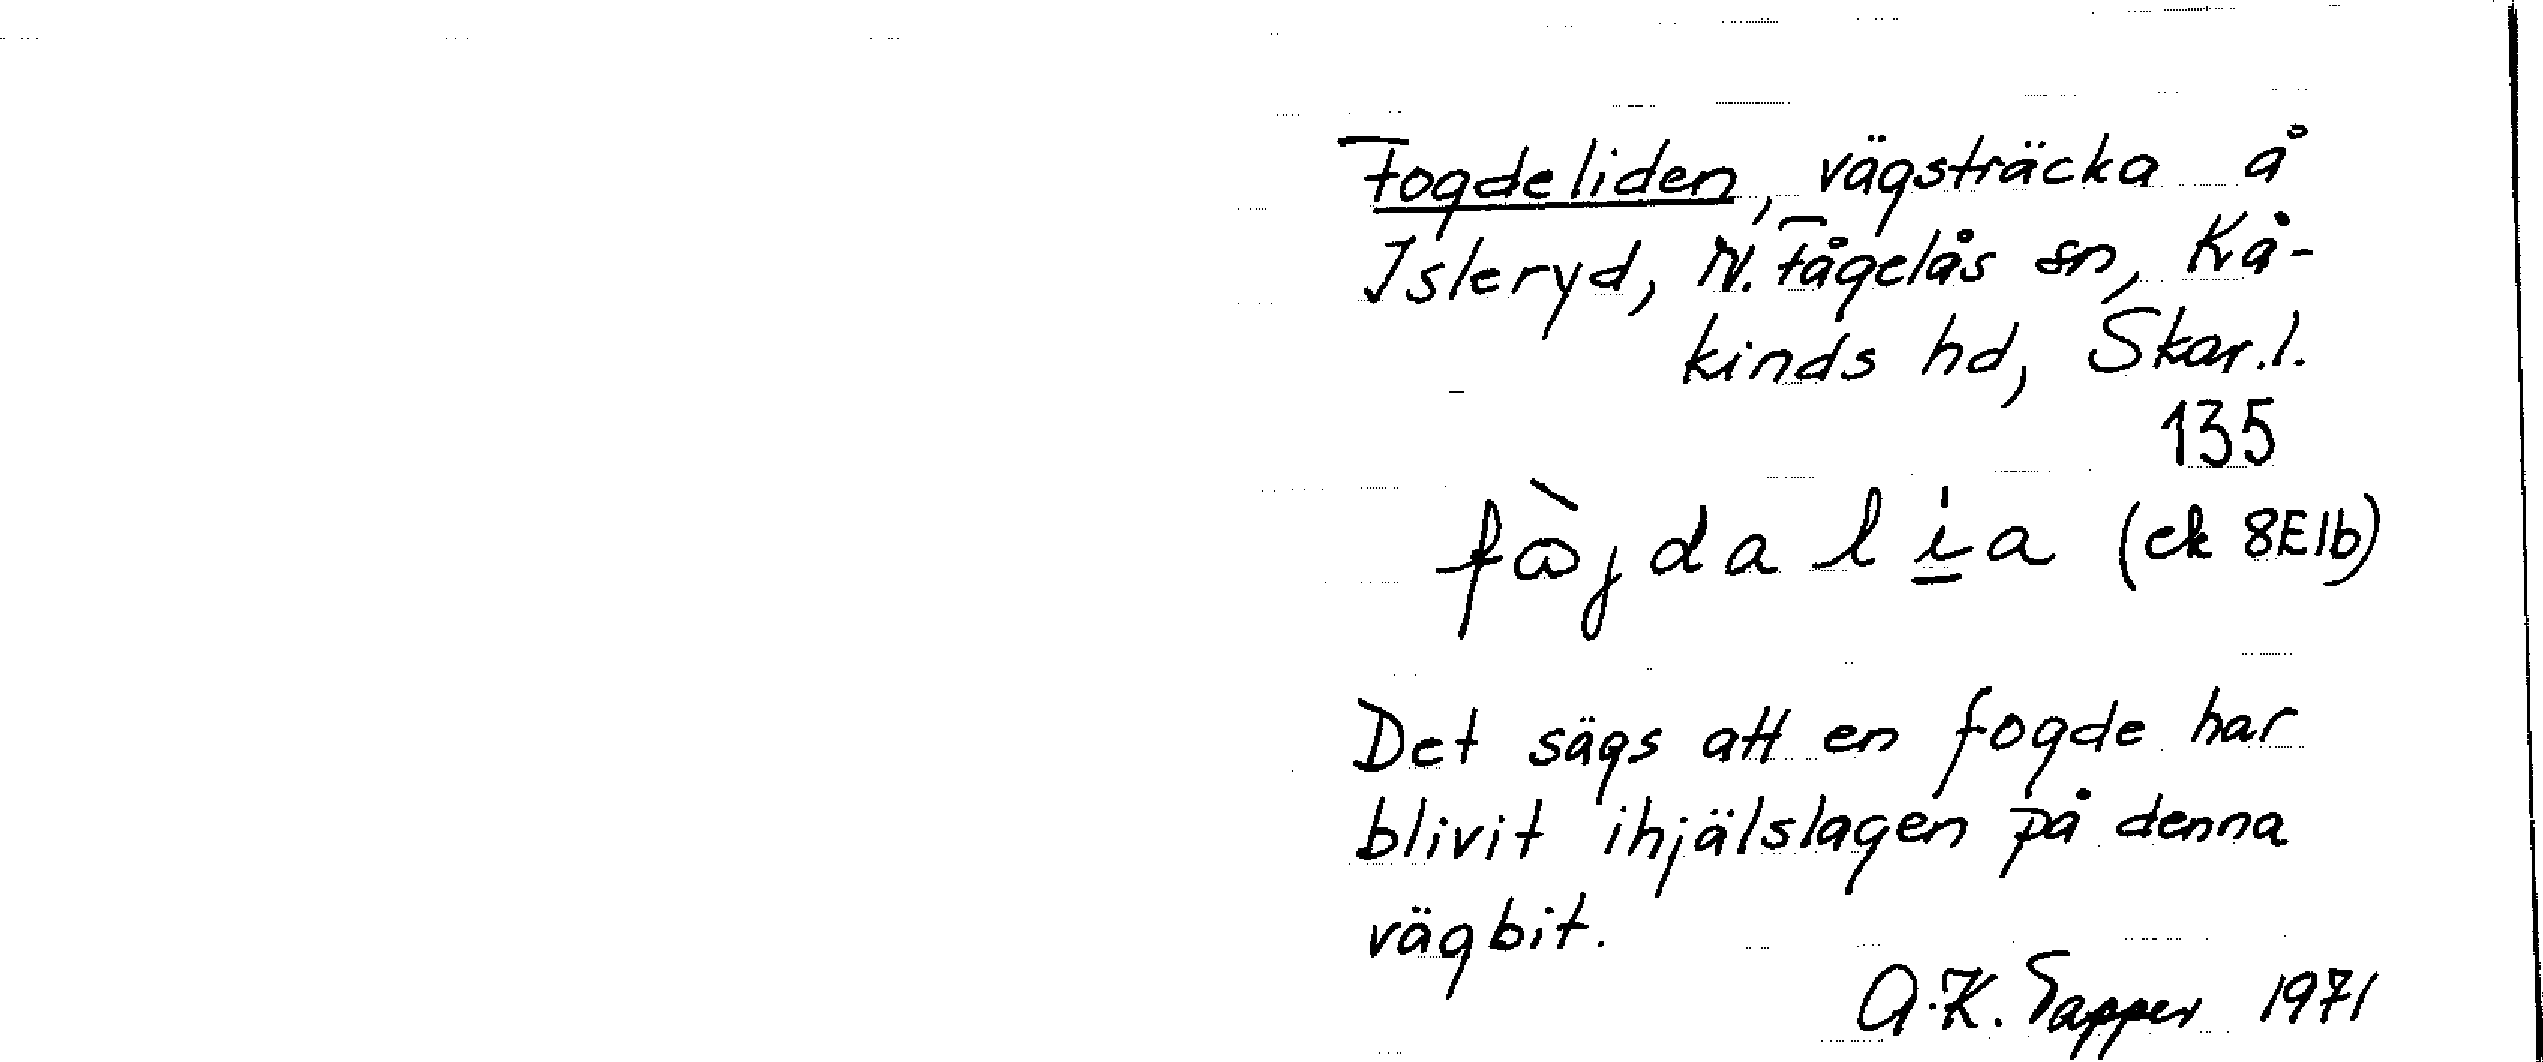 Fogdeliden, vägsträcka å
Isleryd, N. Fågelås sn, Kå-
kinds hd, Skar.l.
135
fὼjda lia (ek 8E1b)
Det sägs att en fogde har
blivit ihjälslagen på denna
vägbit.
A.K. Tapper 1971